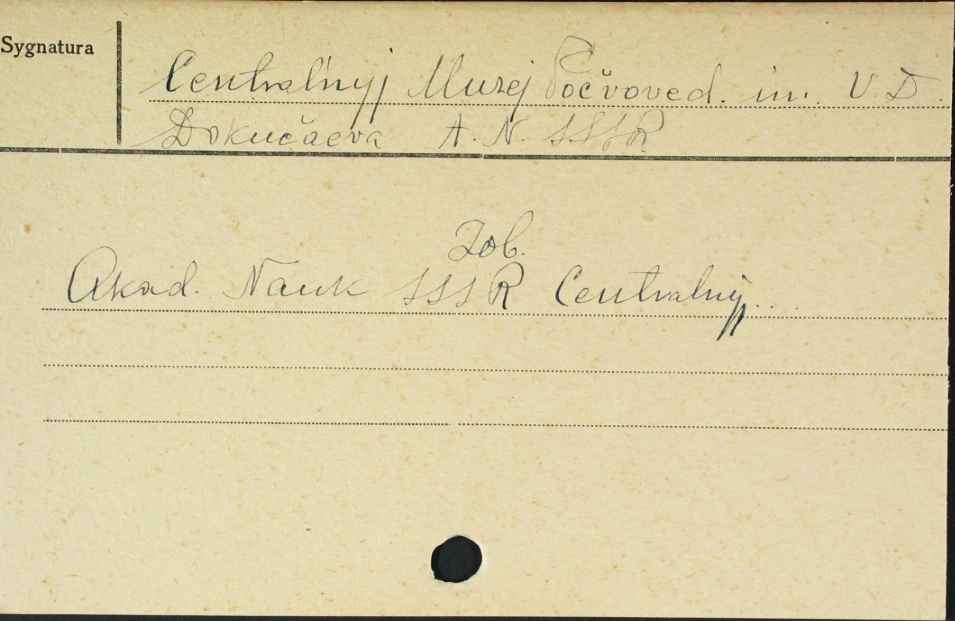 Sygnatura
Centralnyj Muzej Počvoved. im. V. D.
Dokučaeva A. N. SSSR
Zob.
Akad. Nauk SSSR Centralnyj..